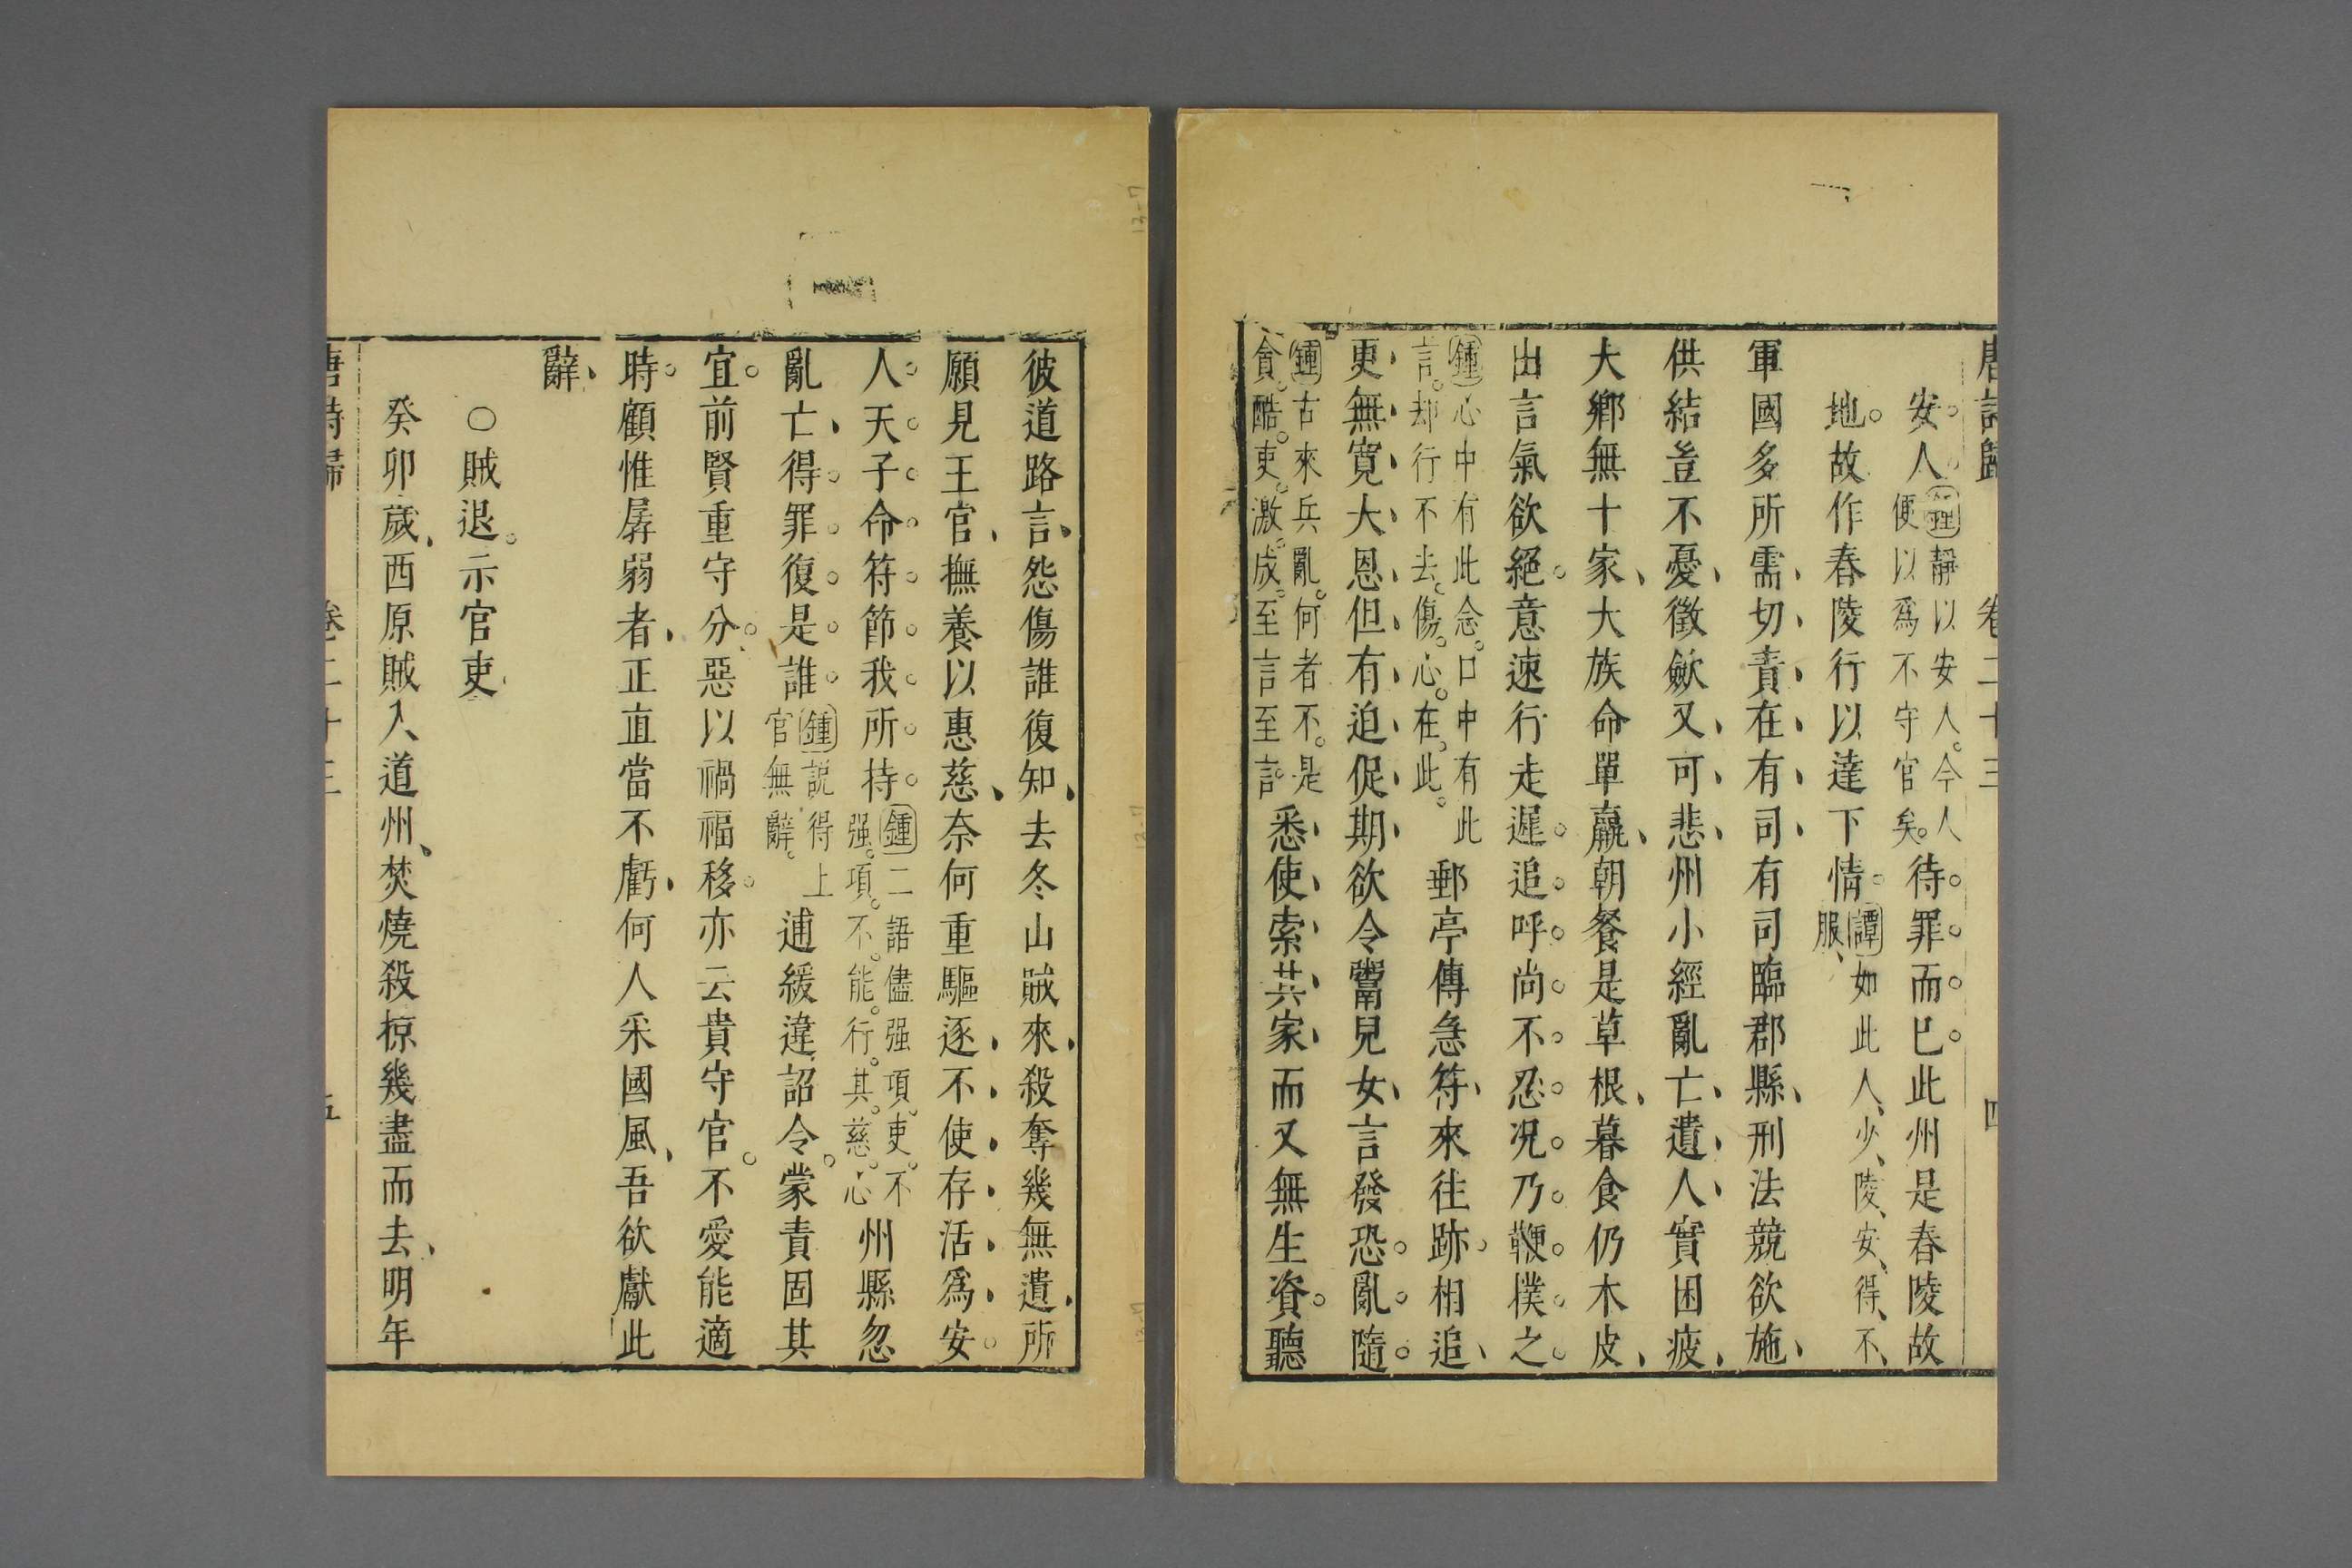 唐詩歸 卷二十三 四
安。人。鍾靜以安人。今人便以爲不守官矣。待。罪。而。已。此州是春陵故
地。故作春陵行以達下情。譚如此人、少、陵、安、得、不、服、
軍國多所需、切、責、在、有、司、有司臨郡縣、刑法競欲施、
供結豈不憂、徵歛又、可、悲、州小經亂亡、遺、人、實困疲、
大鄉無十家、大族命單羸、朝餐是草根、暮食仍木皮、
出言氣欲絕。意速行走遲。追。呼。尚。不。忍。况。乃。鞭。撲。之。
鍾心中有此念。口中有此言。却行不去。傷。心。在。此。郵亭傳急符、來往跡、相追、
更、無、寛、大、恩、但、有、迫、促、期、欲令鬻兒女、言發恐。亂。隨。
鍾古來兵亂。何者不。是貪。酷。吏。激。成。至言至言。悉、使、索、其、家、而又無生資。聽
彼道路言、怨傷誰復知、去冬山賊來、殺奪幾無遺、所
願見王官、撫養以惠慈、奈何重驅逐、不、使、存、活、爲、安。
人。天。子。命。符。節。我。所。持。鍾二語儘强項。吏。不强。項。不。能。行。其。慈。心州縣忽
亂亡、得。罪。復。是。誰。鍾説得上官無辭。逋緩違詔令。蒙責固其
宜。前賢重守分。惡以禍福移。亦云貴守官。不愛能適
時。顧惟孱弱者、正直當不虧、何人采國風、吾欲獻此
辭、
○賊退。示官吏
癸卯歲、西原賊入道州、焚燒殺掠幾盡而去、明年
唐詩歸 卷二十三 五